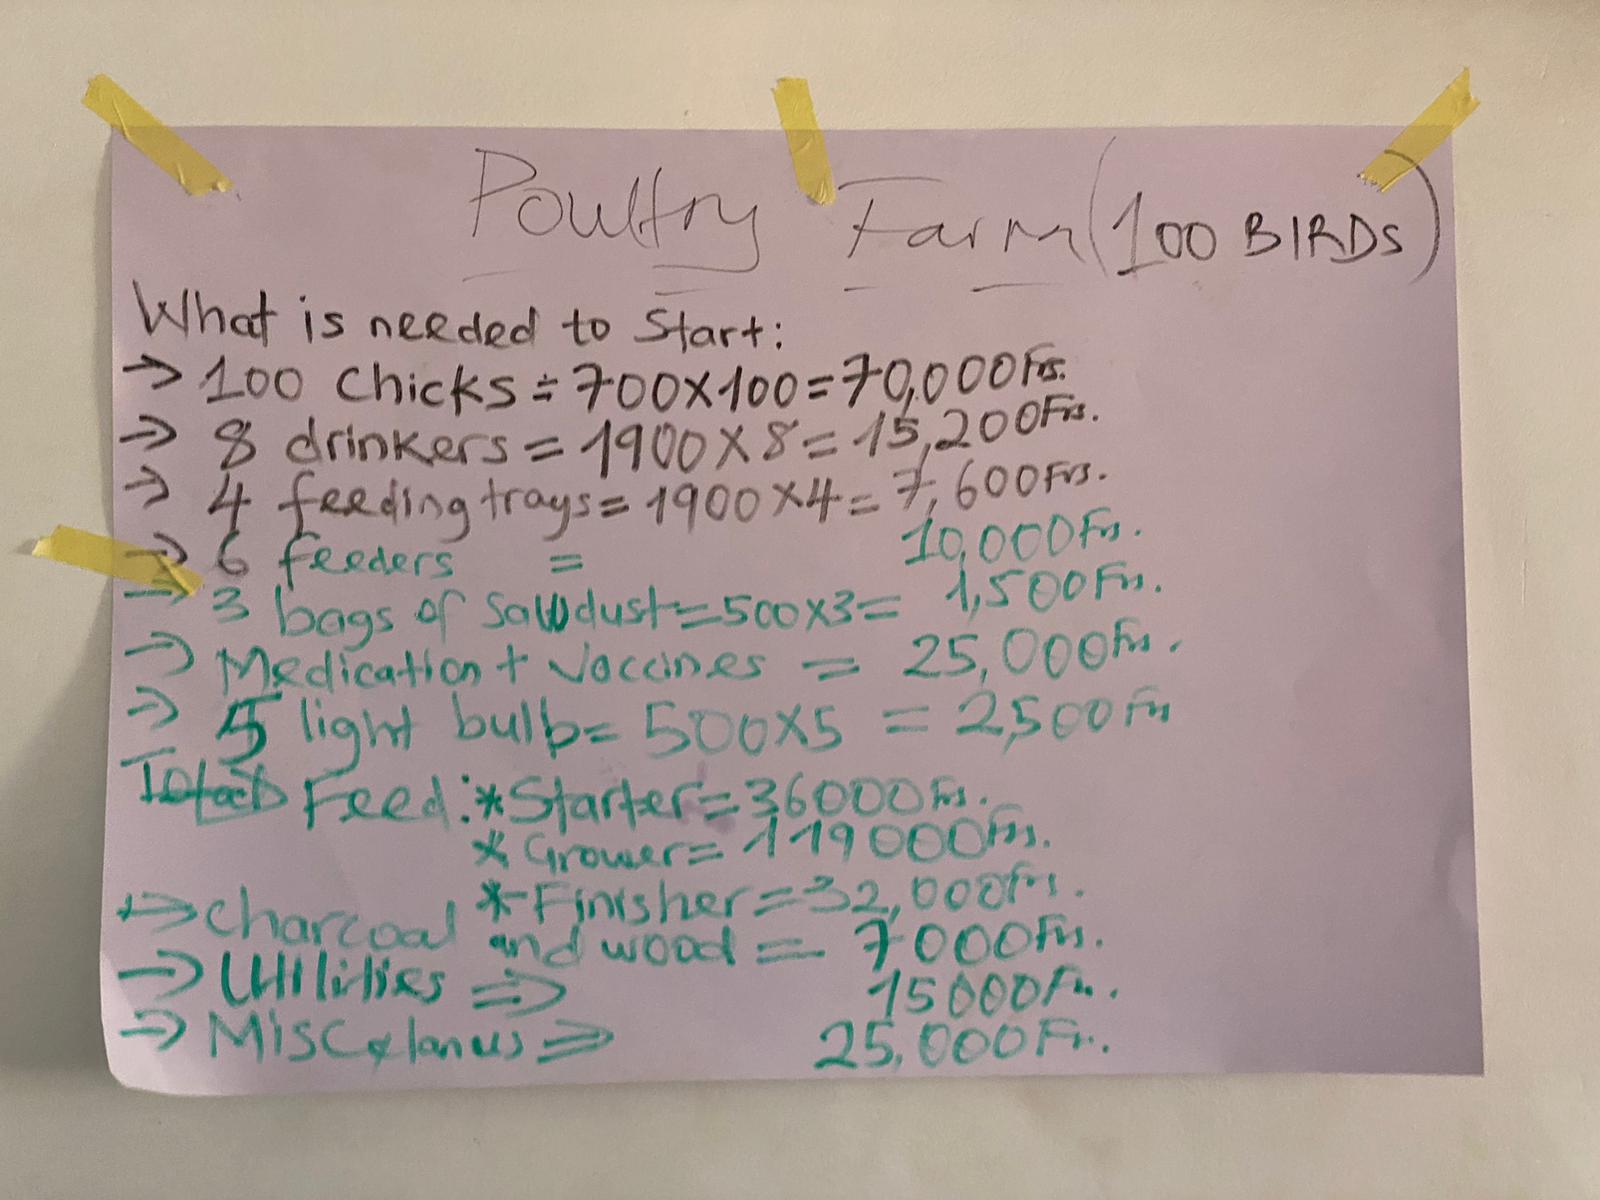 Poultry Farm (100 BIRDS)
What is needed to Start:
→ 100 Chicks ÷ 700X100=70,000Frs.
→ 8 drinkers = 1900X8= 15,200Frs.
→ 4 feeding trays= 1900X4= 7,600Frs.
→ 6 feeders = 10,000Frs.
→ 3 bags of Sawdust=500X3= 1,500Frs.
→ Medication + Vaccines = 25,000Frs.
→ 5 light bulb= 500X5 = 2,500Frs
Feed: *Starter=36000Frs.
* Grower= 119000Frs.
*Finisher=32,000Frs.
→ Charcoal and wood = 7000Frs.
→ Utilities ⇒ 15000Fr.
→ Miscelanus ⇒ 25,000Fr.